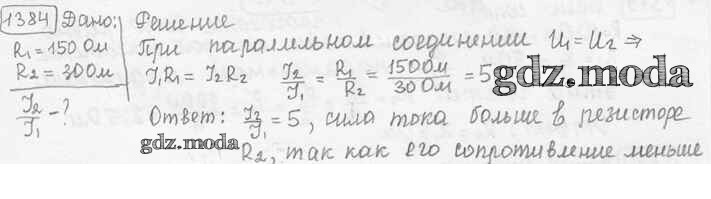 1384 Дано: Решение
R₁ = 150 Ом При параллельном соединении U₁ = U₂ ⇒
R₂ = 30 Ом I₁R₁ = I₂R₂ I₂/I₁ = R₁/R₂ = 150 Ом/30 Ом = 5
gdz.moda
I₂/I₁ - ? Ответ: I₂/I₁ = 5, сила тока больше в резисторе
gdz.moda
R₂, так как его сопротивление меньше